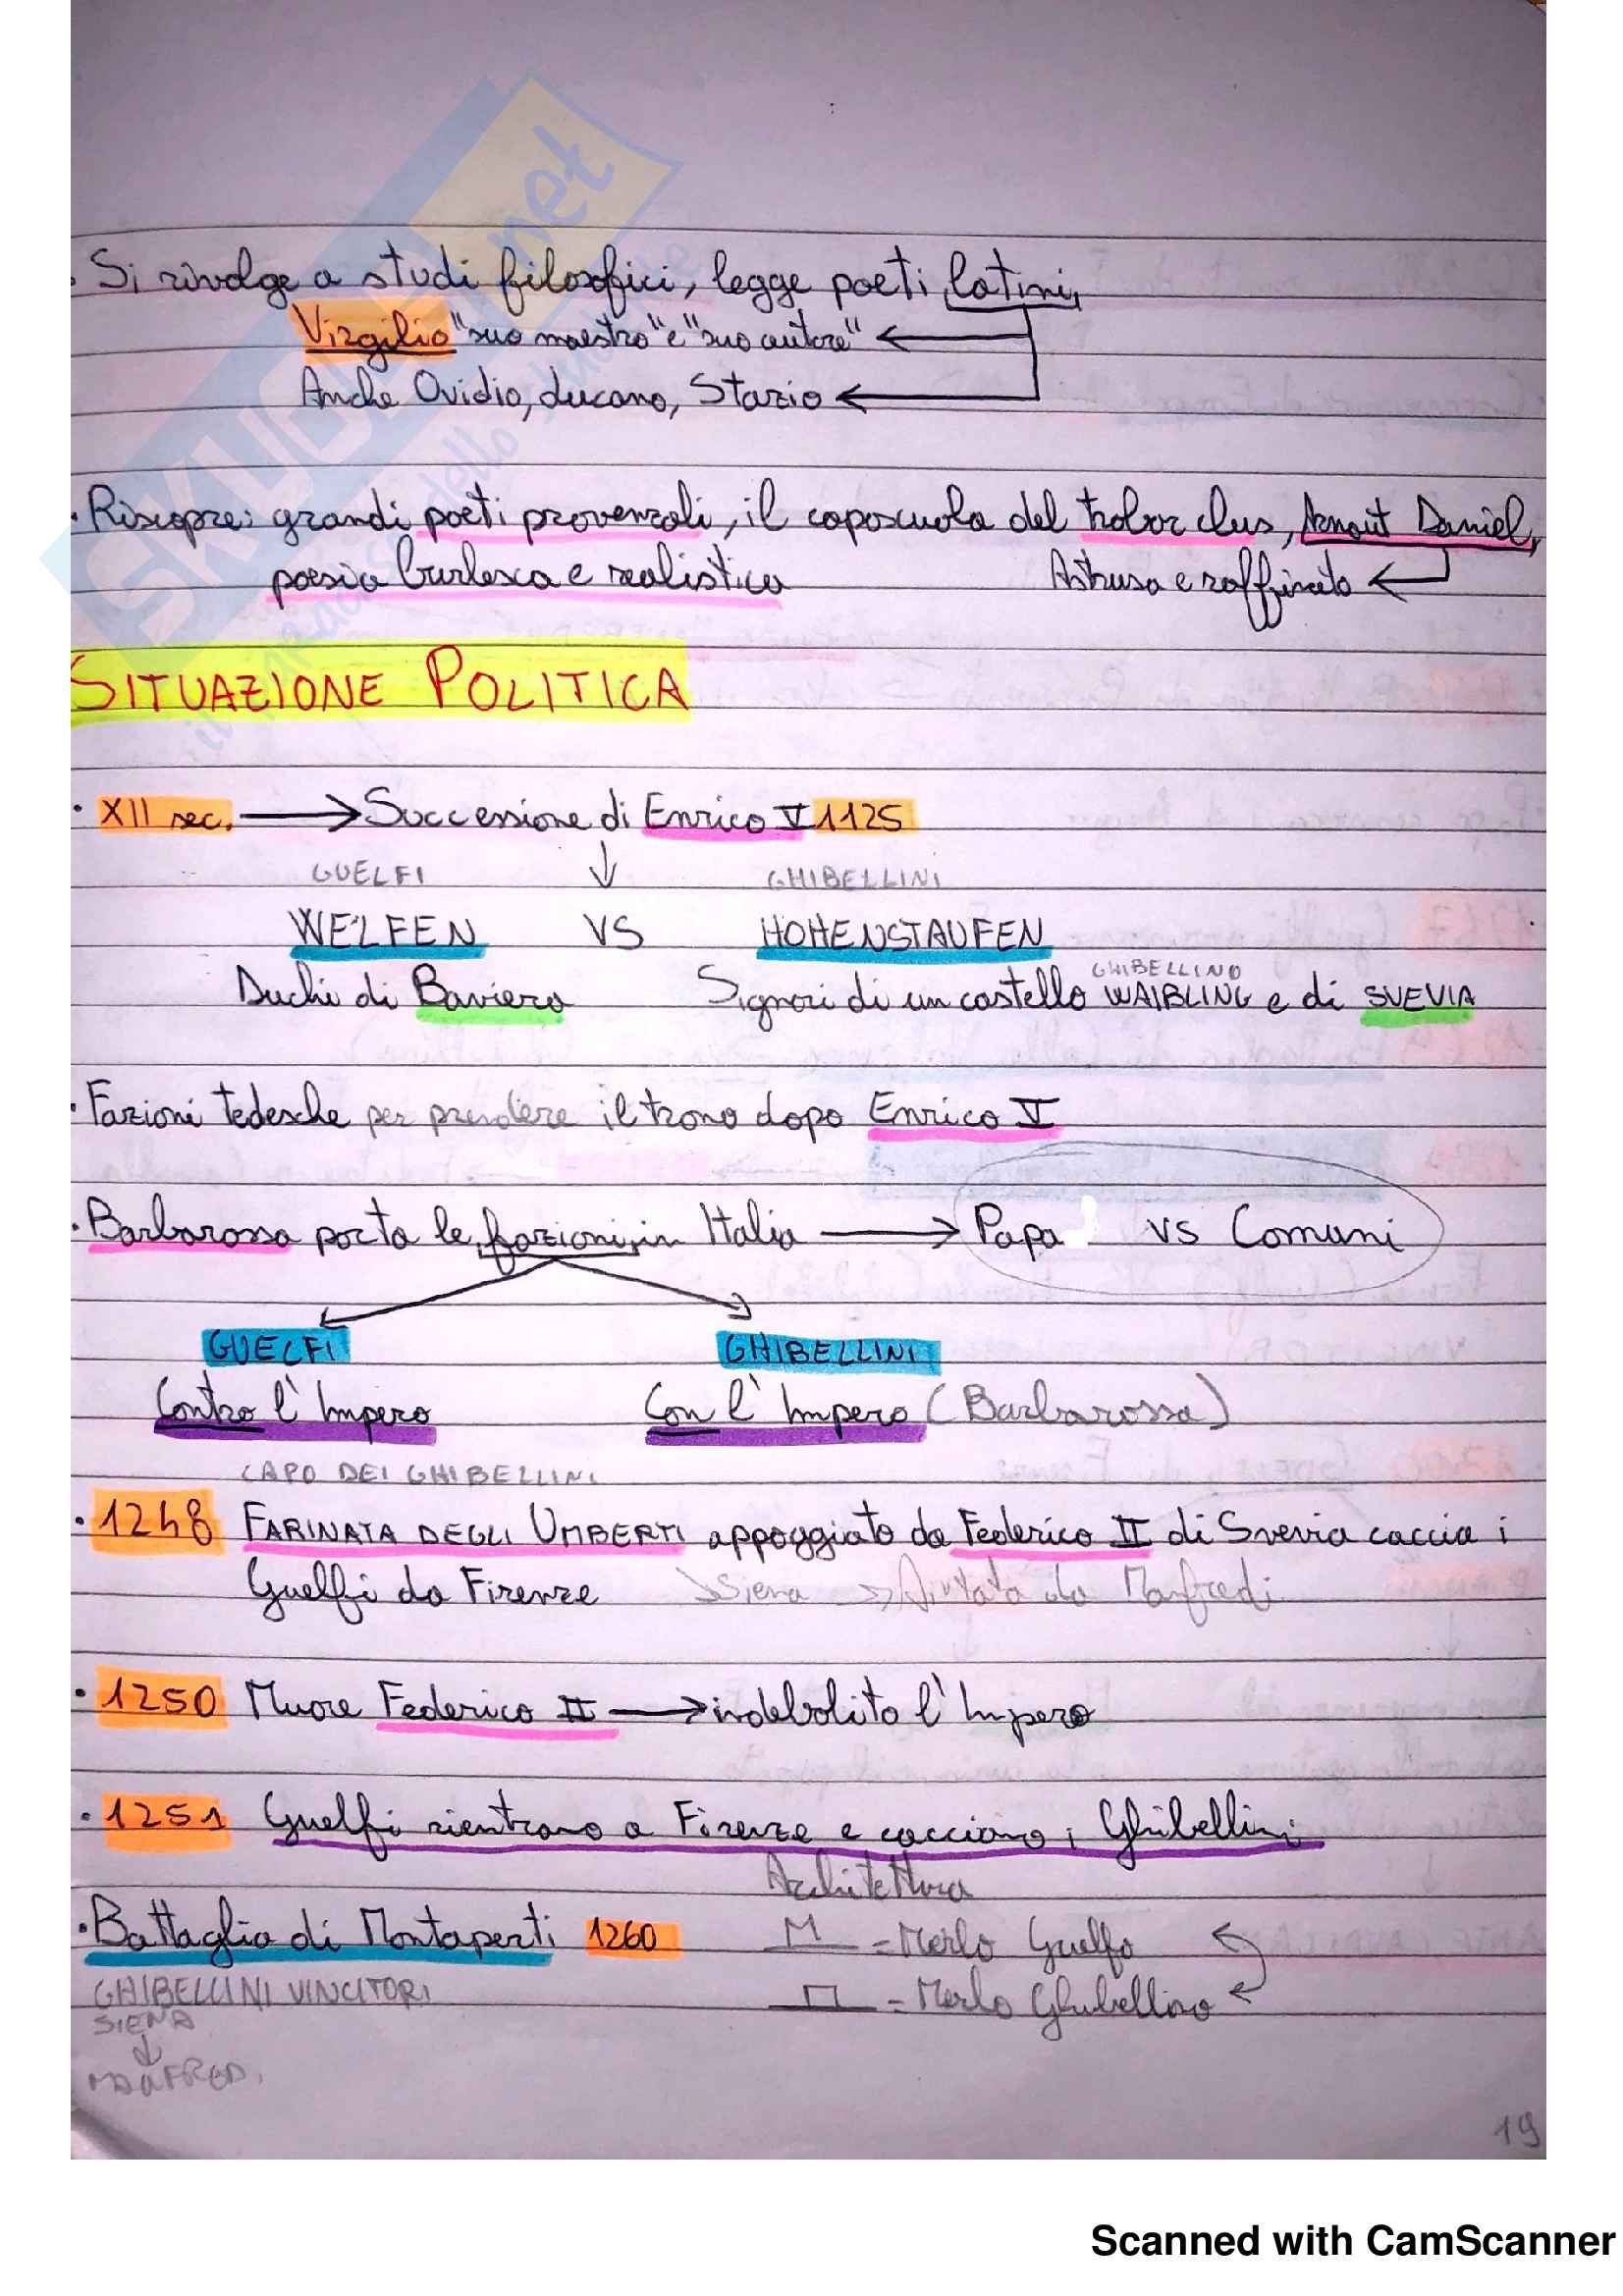 · Si rivolge a studi filosofici, legge poeti latini,
Virgilio "suo maestro" e "suo autore"
Anche Ovidio, Lucano, Stazio
· Riscopre: grandi poeti provenzali, il caposcuola del trobar clus, Arnaut Daniel,
poesia burlesca e realistica Astrusa e raffinata
SITUAZIONE POLITICA
· XII sec. → Successione di Enrico V 1125
GUELFI ↓ GHIBELLINI
WELFEN VS HOHENSTAUFEN
GHIBELLINO
Duchi di Baviera Signori di un castello WAIBLING e di SVEVIA
· Fazioni tedesche per prendere il trono dopo Enrico V
· Barbarossa porta le fazioni in Italia → Papa VS Comuni
GUELFI GHIBELLINI
Contro l'Impero Con l'Impero (Barbarossa)
CAPO DEI GHIBELLINI
· 1248 FARINATA DEGLI UMBERTI appoggiato da Federico II di Svevia caccia i
Guelfi da Firenze → Siena → Aiutata da Manfredi
· 1250 Muore Federico II → indebolito l'Impero
· 1251 Guelfi rientrano a Firenze e cacciano i Ghibellini
Architettura
· Battaglia di Montaperti 1260 M = Merlo Guelfo
GHIBELLINI VINCITORI = Merlo Ghibellino
SIENA
↓
MANFREDI
19
Scanned with CamScanner
SKUOLA.net